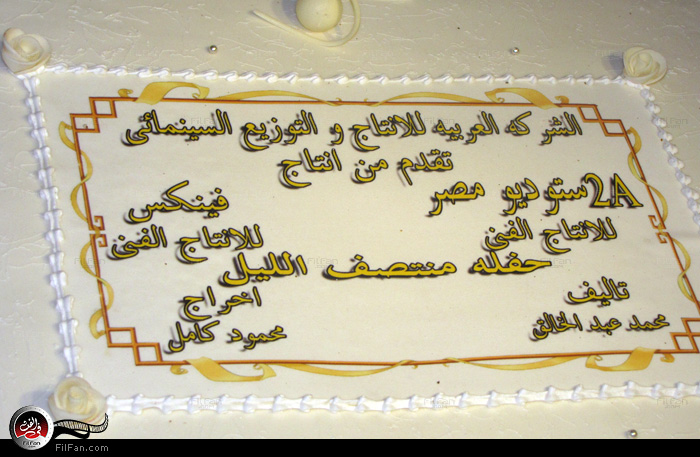 الشركه العربيه للانتاج و التوزيع السينمائى
تقدم من انتاج
2A ستوديو مصر
فينكس
للانتاج الفنى
للانتاج الفنى
حفله منتصف الليل
تاليف
اخراج
محمد عبد الخالق
محمود كامل
FilFan
FilFan.com